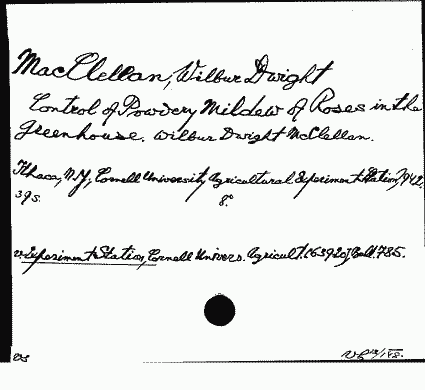 MacClellan, Wilbur Dwight
Control of Powdery Mildew of Roses in the
Greenhouse. Wilbur Dwight McClellan.
Ithaca, N.Y., Cornell University, Agricultural Experiment Station, 1942.
39s. 8°.
v. Experiment Station, Cornell Univers. Agricult. [63920] Bull. 785.